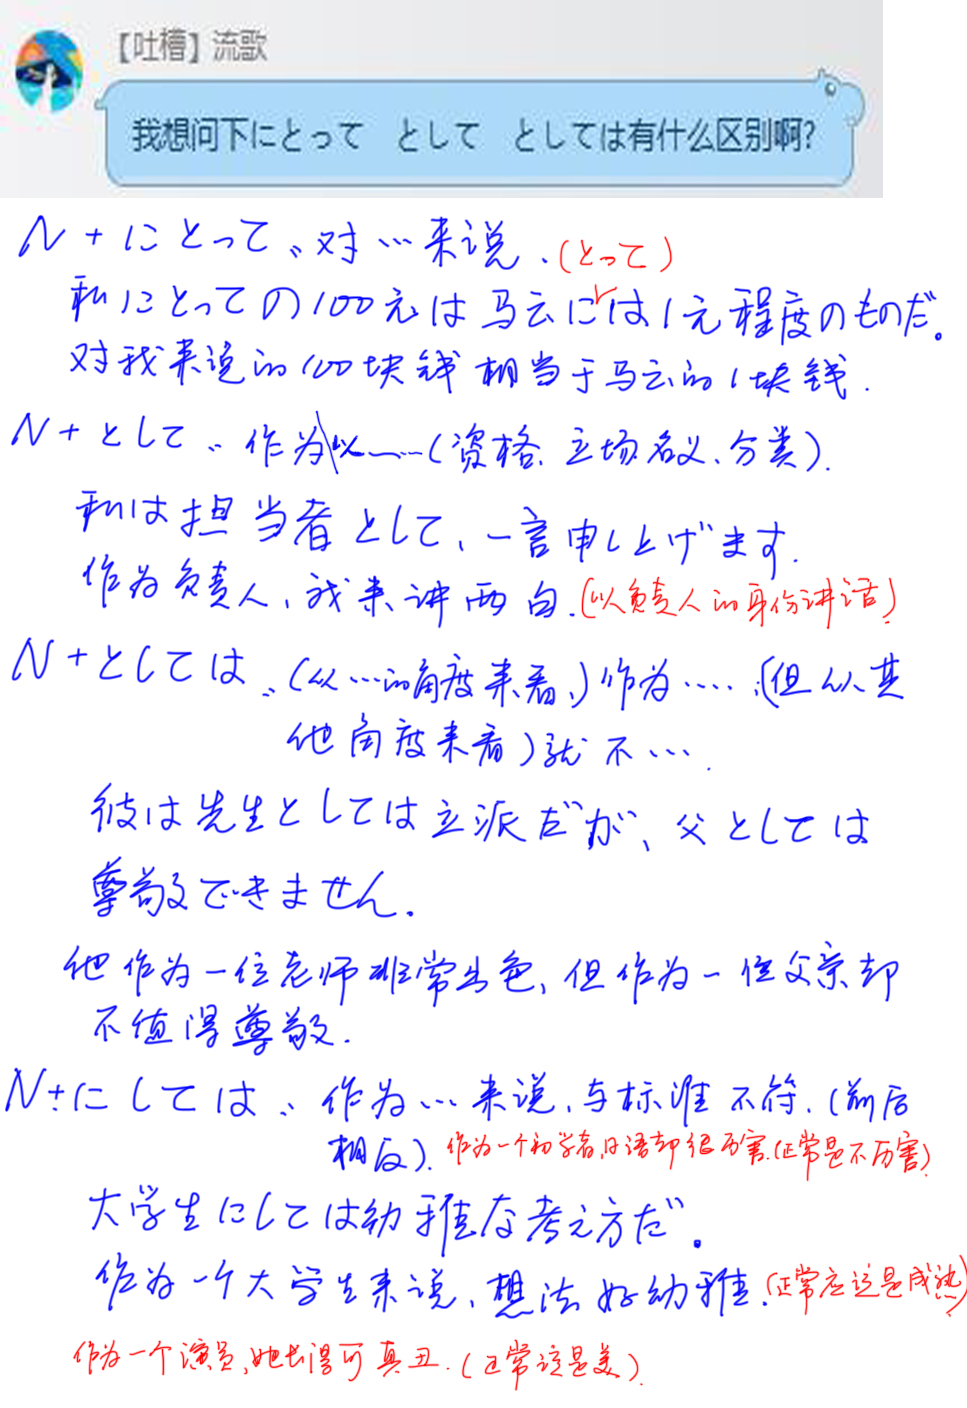 【吐槽】流歌
我想问下にとって　として　としては有什么区别啊?
N+にとって、对…来说.(とって)
私にとっての100元は马云には1元程度のものだ。
对我来说的100块钱相当于马云的1块钱.
N+として、作为\以……(资格、立场、名义、分类).
私は担当者として、一言申し上げます.
作为负责人、我来讲两句.(以负责人的身份讲话)
N+としては、(从…的角度来看、)作为…. (但从其
他角度来看)就不….
彼は先生としては立派だが、父としては
尊敬できません.
他作为一位老师非常出色、但作为一位父亲却
不值得尊敬.
N+にしては、作为…来说、与标准不符.(前后
相反).作为一个初学者,日语却很厉害.(正常是不厉害)
大学生にしては幼稚な考え方だ。
作为一个大学生来说、想法好幼稚.(正常应该是成熟)
作为一个演员,她长得可真丑.(正常该是美)